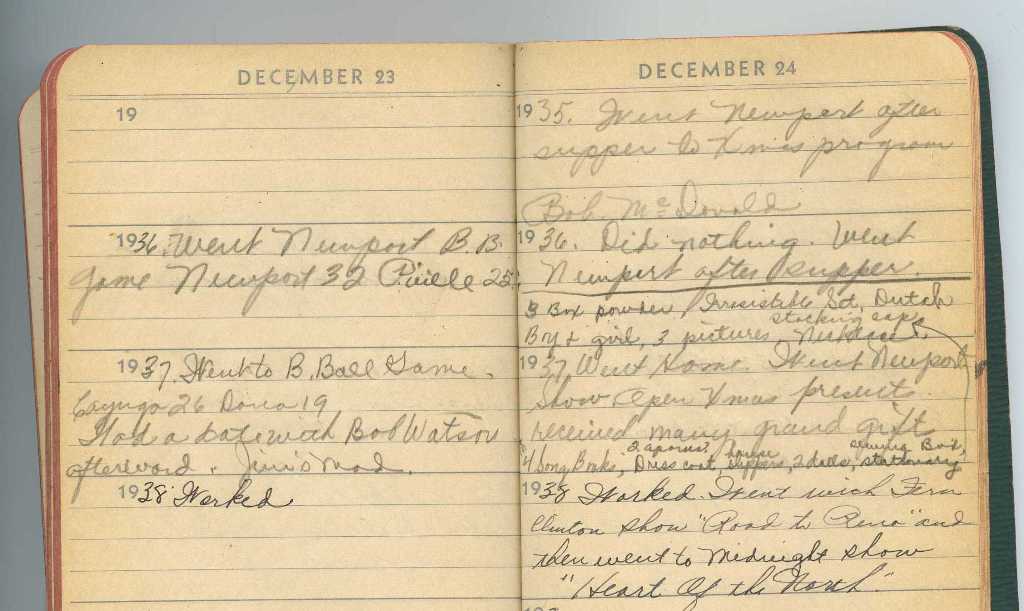 DECEMBER 23
19
1936. Went Newport B.B.
game Newport 32 25
1937. Went to B. Ball Game.
Cayuga 26 Dana 19
Had a date with Bob Watson
afterward. Jim's mad.
1938 Worked
DECEMBER 24
1935. Went Newport after
supper to Xmas program
Bob McDonald
1936. Did nothing. Went
Newport after supper.
3 Box powder, Irresistible Set, Dutch
stocking cap
Boy & girl, 3 pictures, Necklace
1937 Went home. Went Newport
show. Open Xmas presents.
received many grand gift
2 aprons, house sewing Box,
4 Song Books, Dress coat, slippers, 2 dolls, stationary
1938 Worked. Went with Fern
Clinton show "Road to Reno" and
then went to Midnight show
"Heart Of the North"